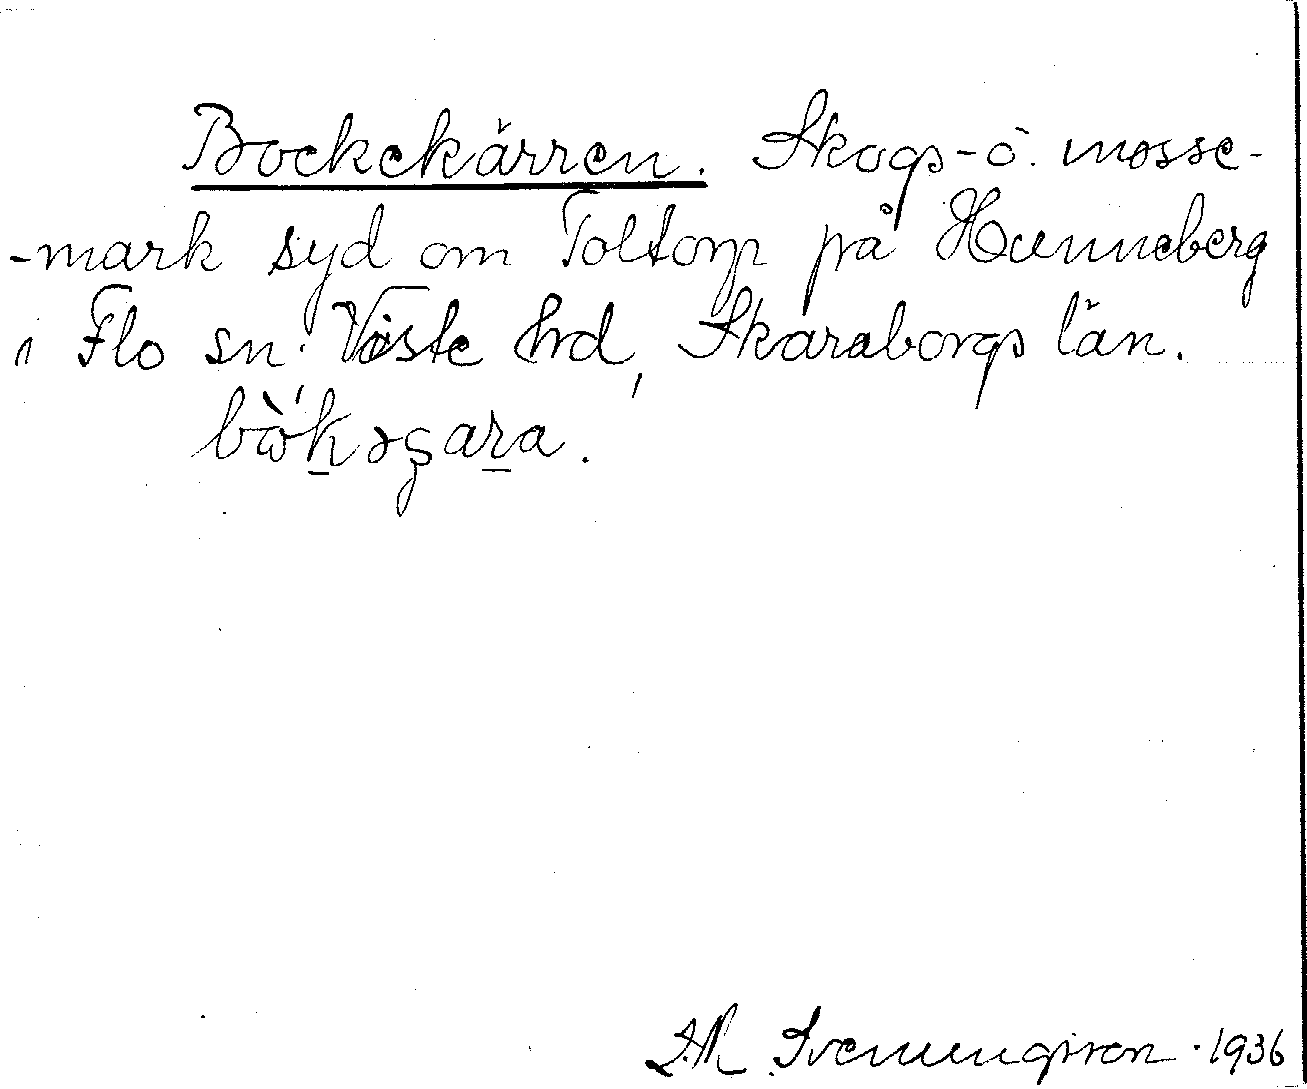 Bockekärren. Skogs- o. mosse-
-mark syd om Toltorp på Hunneberg
i Flo sn. Viste hrd, Skaraborgs län.
bὼḵəʂaṟa.
Svenungsson · 1936